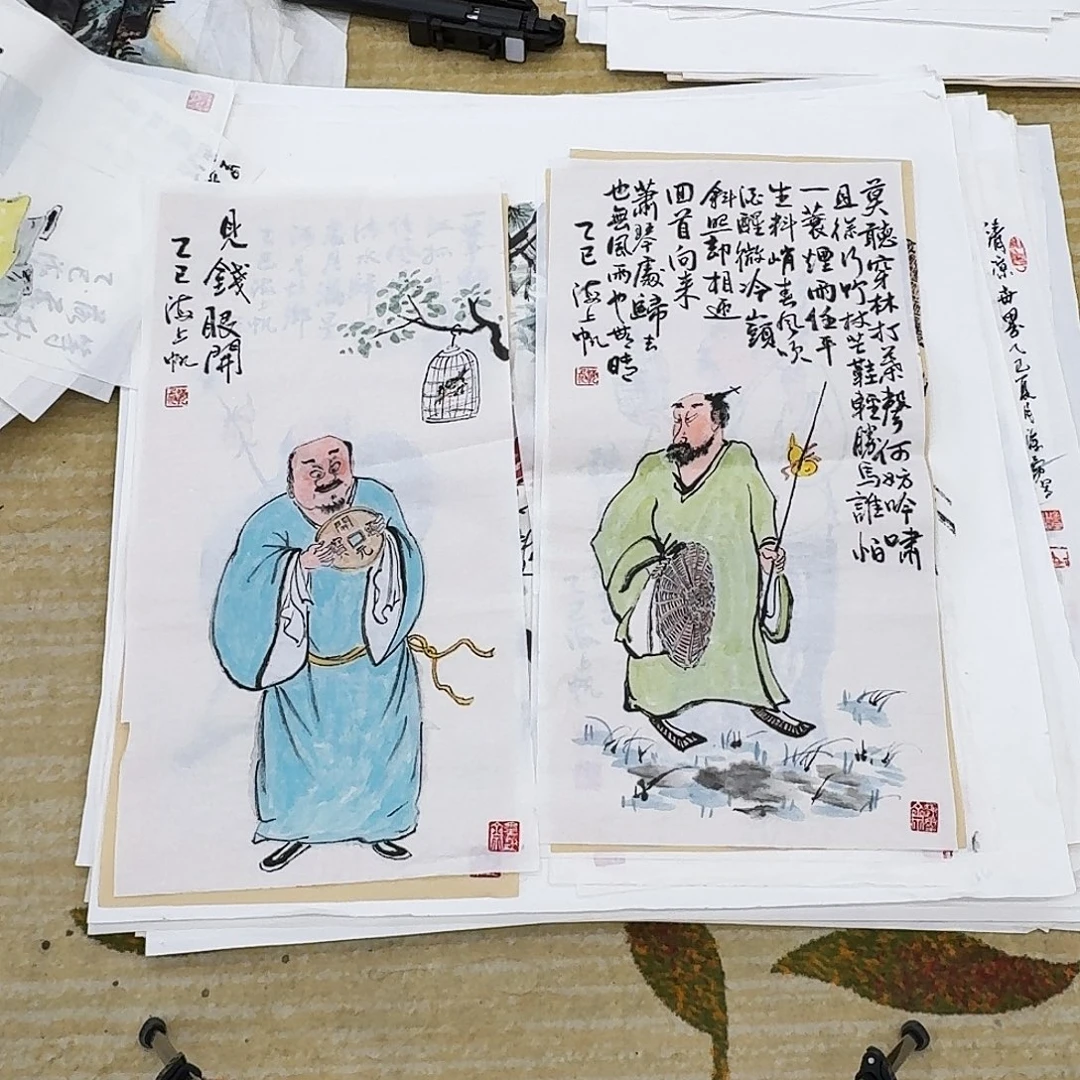 見錢眼開
乙巳 海上帆
開元
莫聽穿林打葉聲何妨吟嘯
且徐行竹杖芒鞋輕勝馬誰怕
一蓑煙雨任平
生料峭春風吹
酒醒微冷山頭
斜照却相迎
回首向來
蕭瑟處歸去
也無風雨也無晴
乙巳 海上帆
清涼世界乙巳夏月海